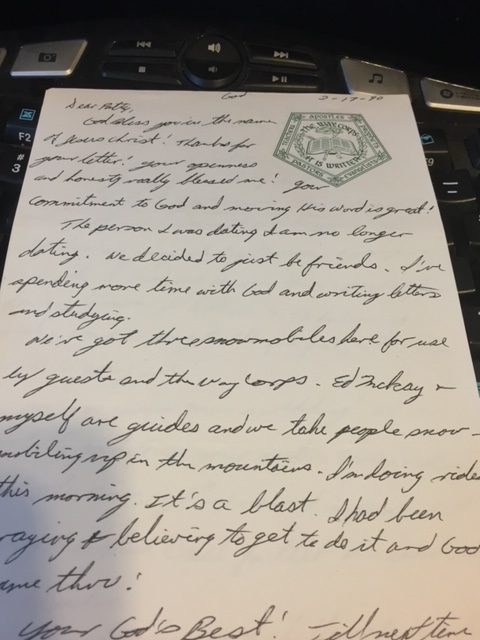 God 2-17-90
Dear Patty,
God bless you in the name
of Jesus Christ! Thanks for
your letter! Your openness
and honesty really blessed me! Your
commitment to God and moving His Word is great!
The person I was dating I am no longer
dating. We decided to just be friends. I've
spending more time with God and writing letters
and studying.
We've got three snowmobiles here for use
by guests and the Way Corps. Ed &
myself are guides and we take people snow-
mobiling up in the mountains. I'm doing rides
this morning. It's a blast. I had been
raying & believing to get to do it and God
ame thru!
Your God's Best! Till next time
APOSTLES
PROPHETS
EVANGELISTS
PASTORS
TEACHERS
THE WAY CORPS
IT IS WRITTEN
F2
#
3
F9